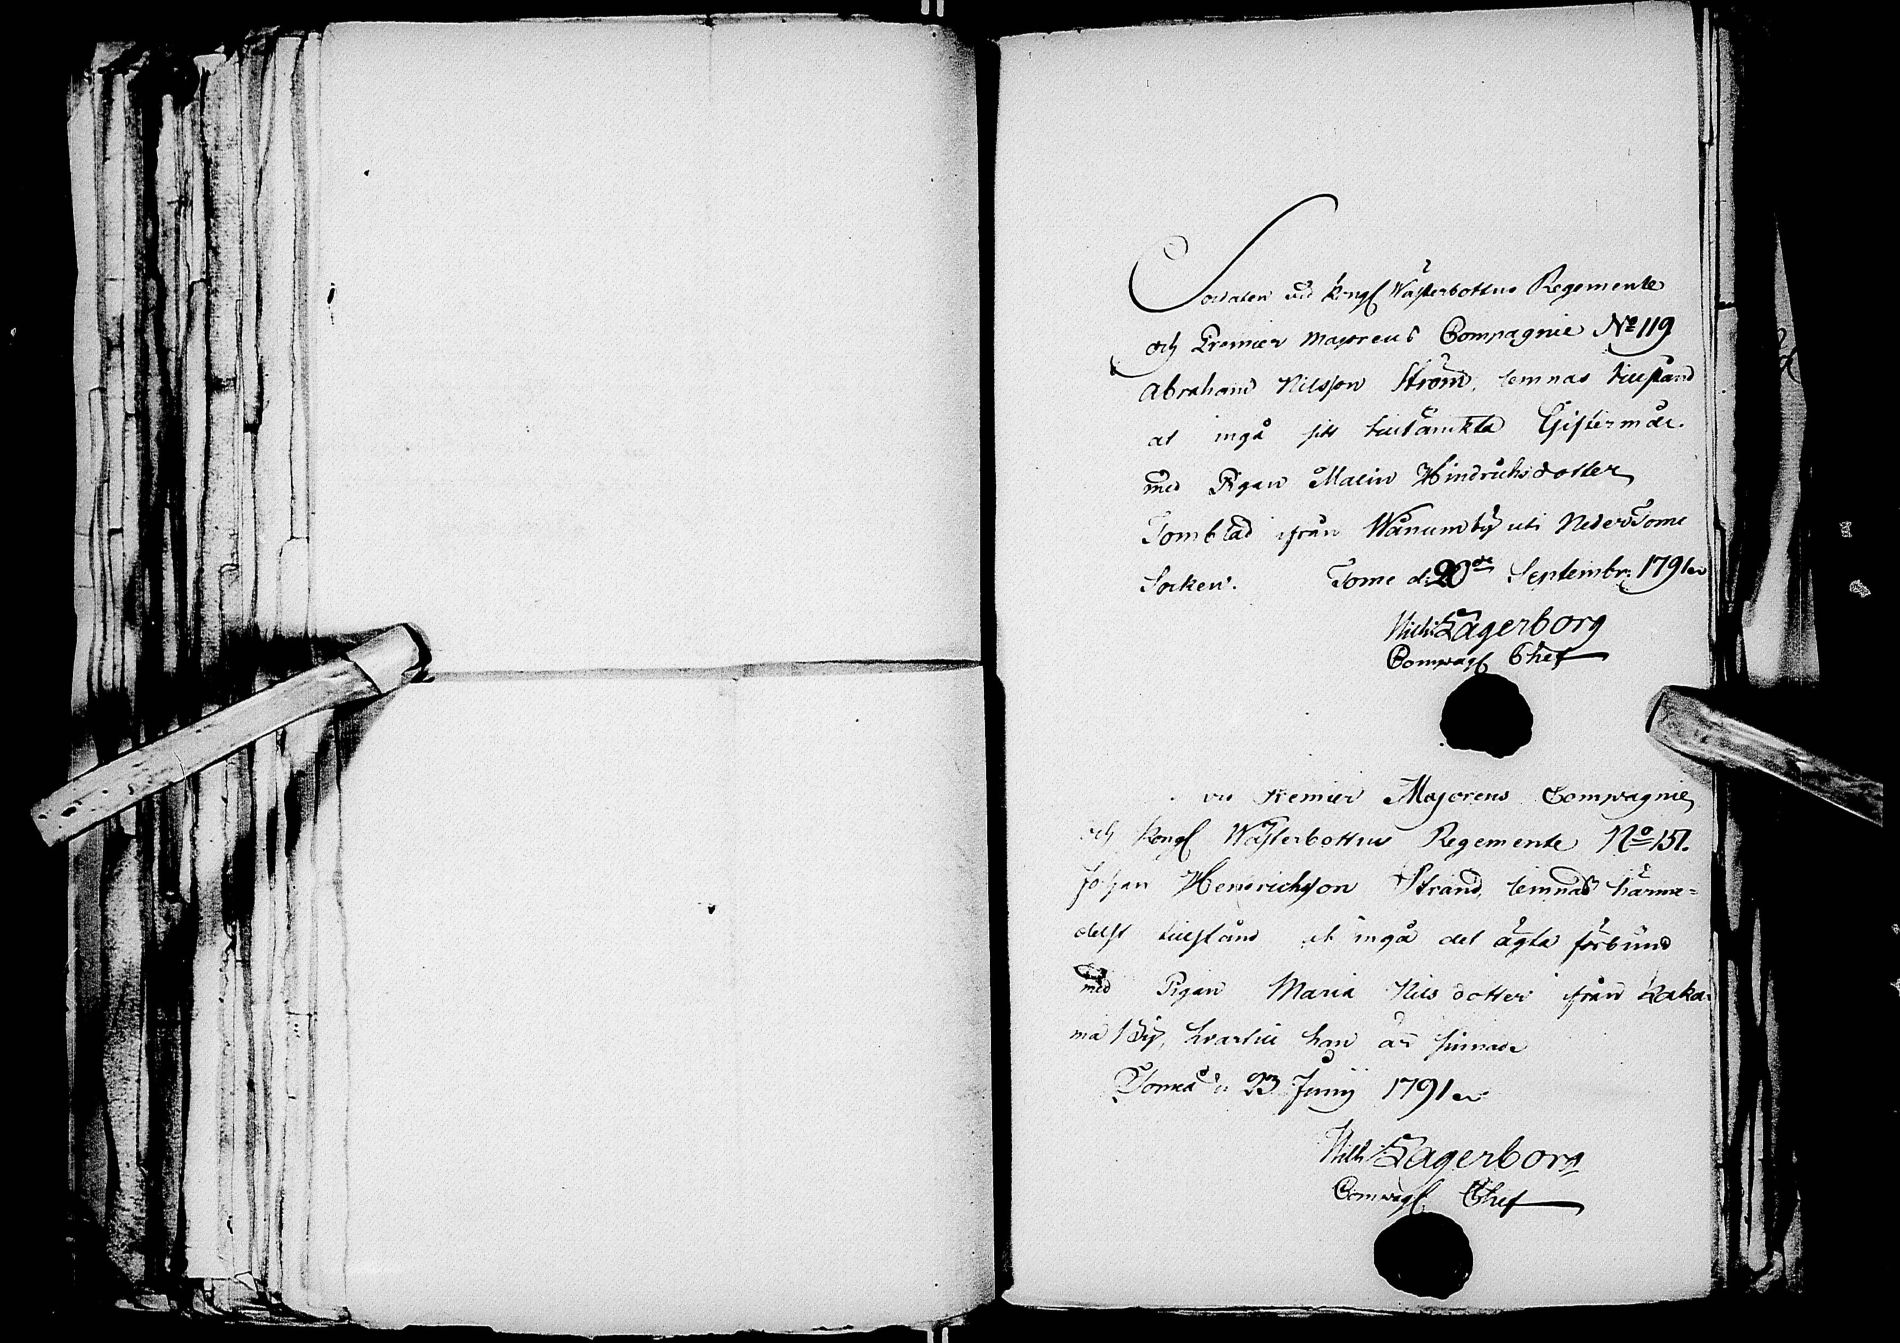 Soldaten vid Kongl Wästerbottns Regemente
och Premier Majorens Compagnie No 119
Abraham Nilsson Ström, lemnas tillstånd
at ingå sitt tilltänkta Giftermål
med Pigan Malin Hindrichsdotter
Tomblad ifrån Wånumby uti Neder Torne
Socken. Torne d. 20de Septembr: 1791
Wilh: Lagerborg
Compagl Chef
vid Premier Majorens Compagnie
och Kongl Wästerbottns Regemente No 151.
Johan Henrichsson Strand, lemnas härme-
delst tillstånd at ingå det ägta förbund
med Pigan Maria Nils dotter ifrån Laka-
ma By, hvartill han är sinnad
Torneå d. 23 Junij 1791
Wilh: Lagerborg
Compagl Chef